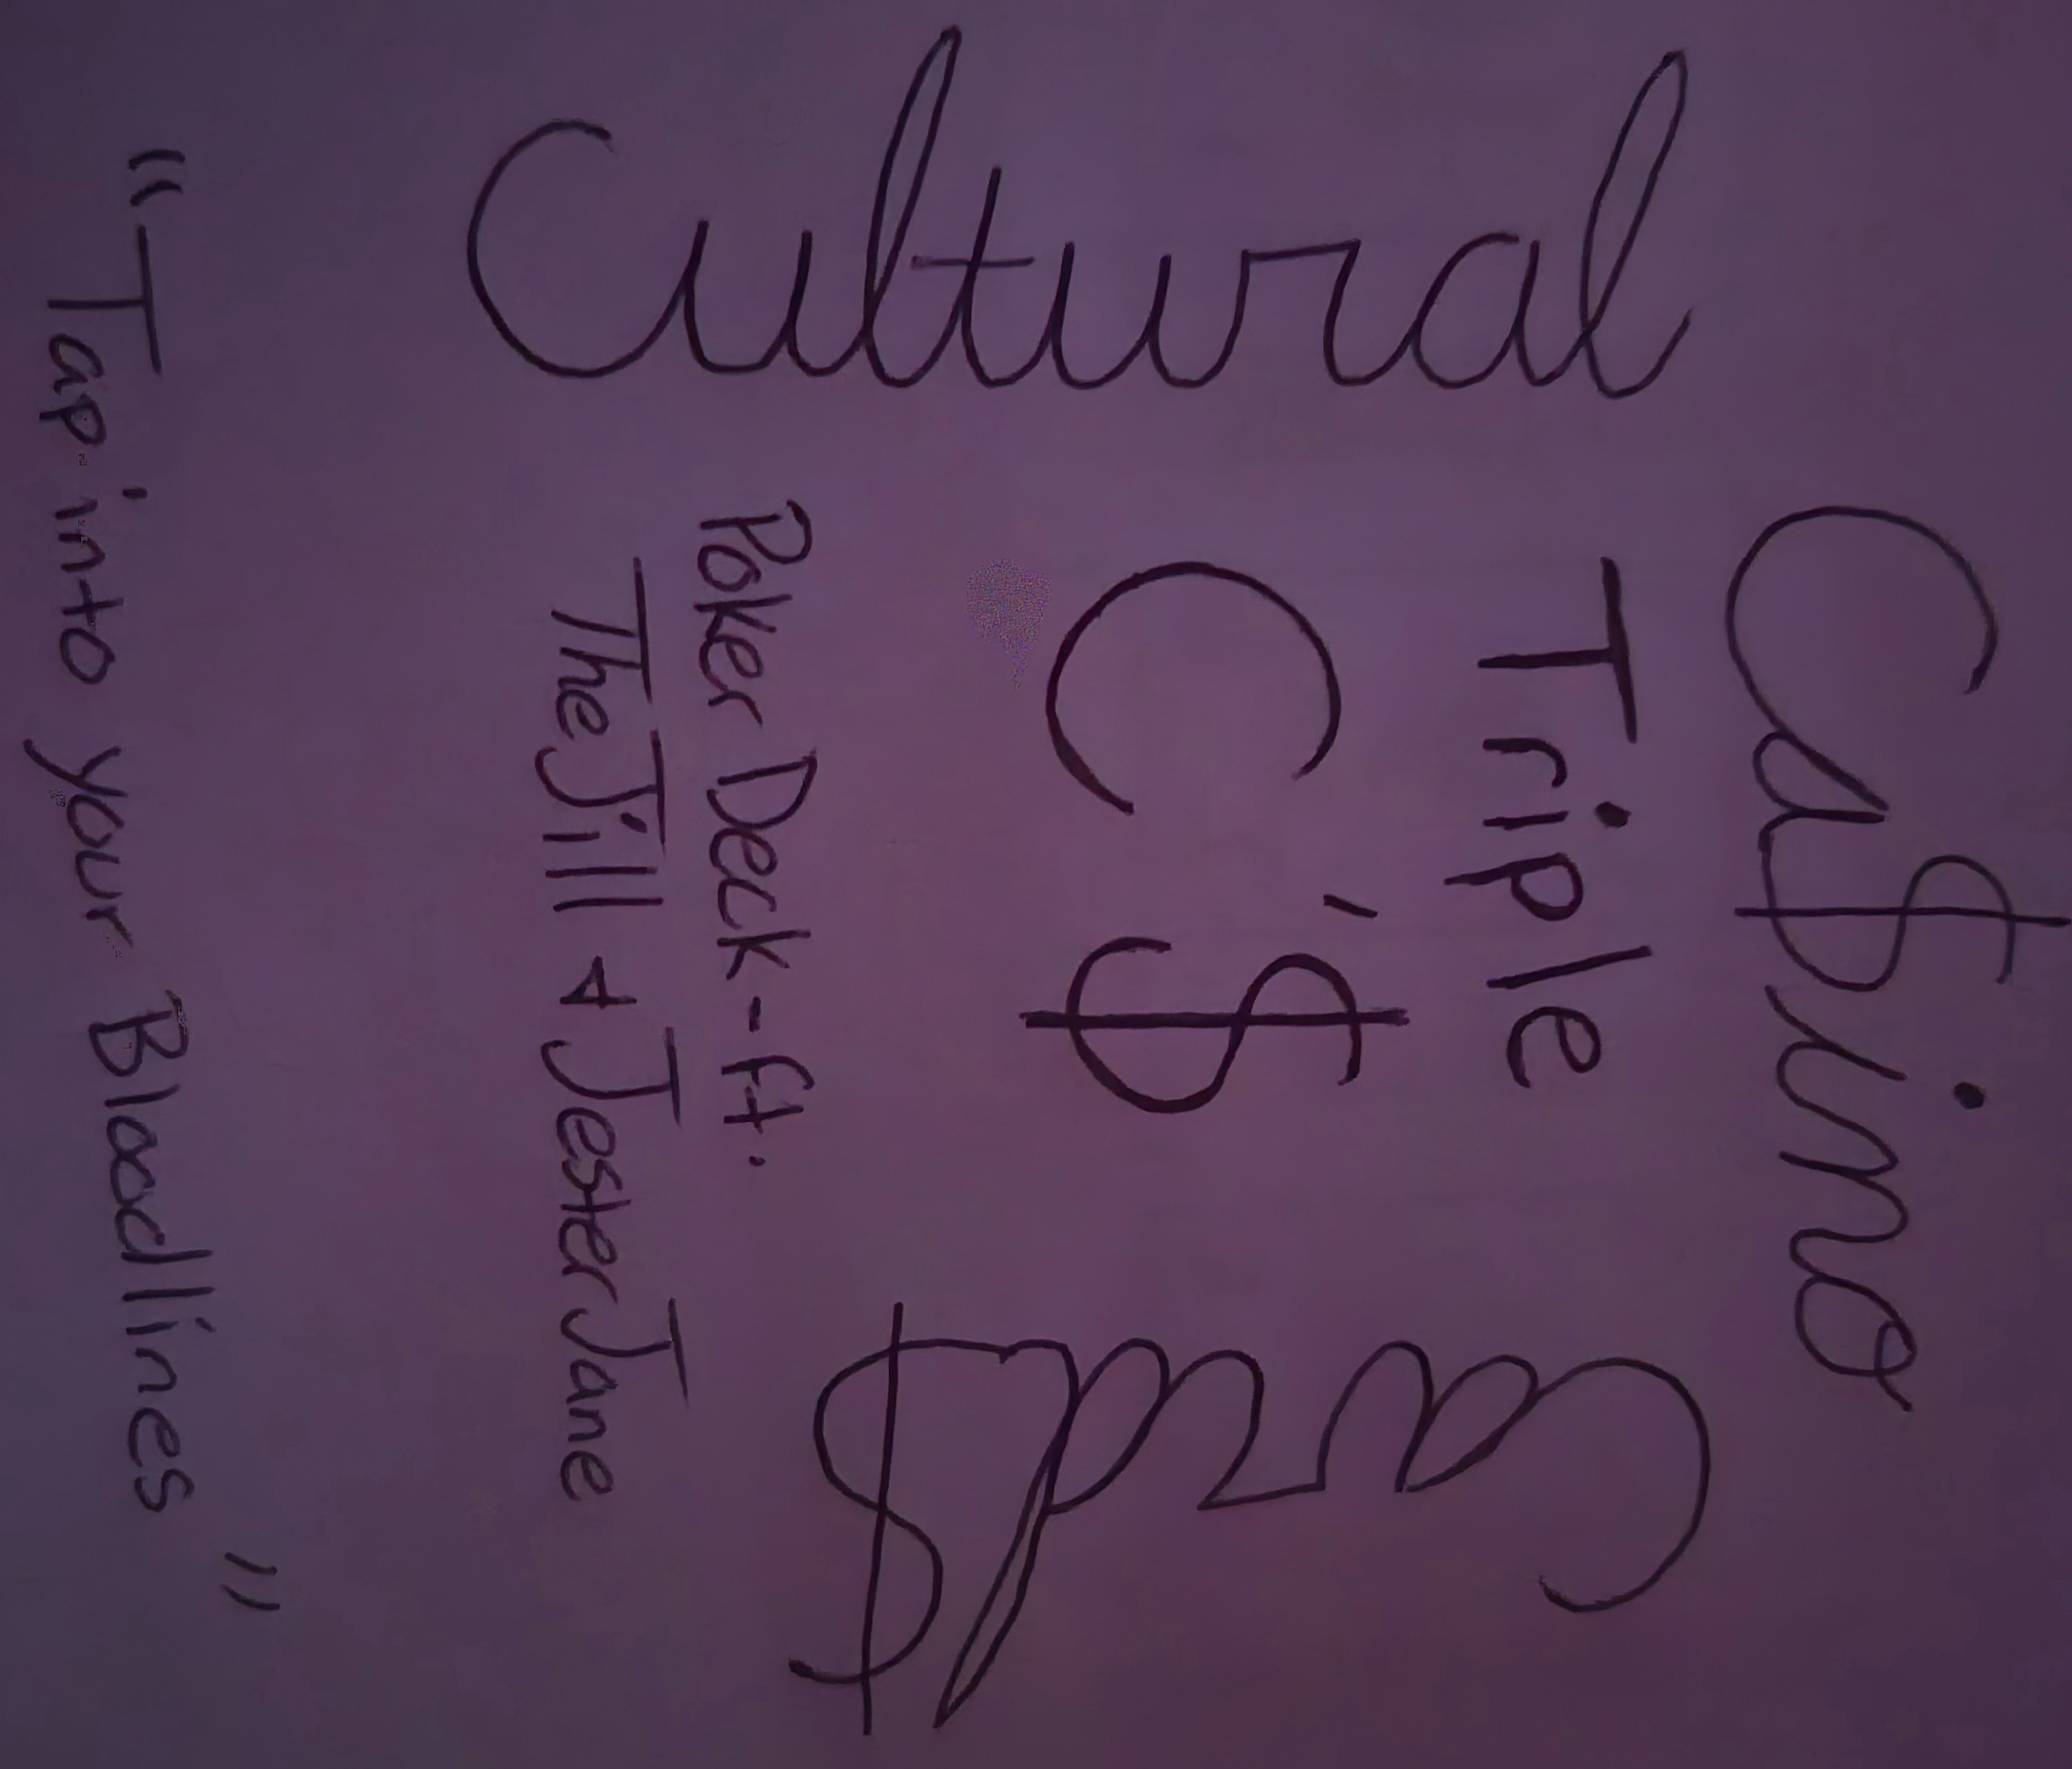 Cultural
Ca$ino
Card$
Triple
C'$
Poker Deck - ft.
The Jill & Jester Jane
"Tap into your Bloodlines"